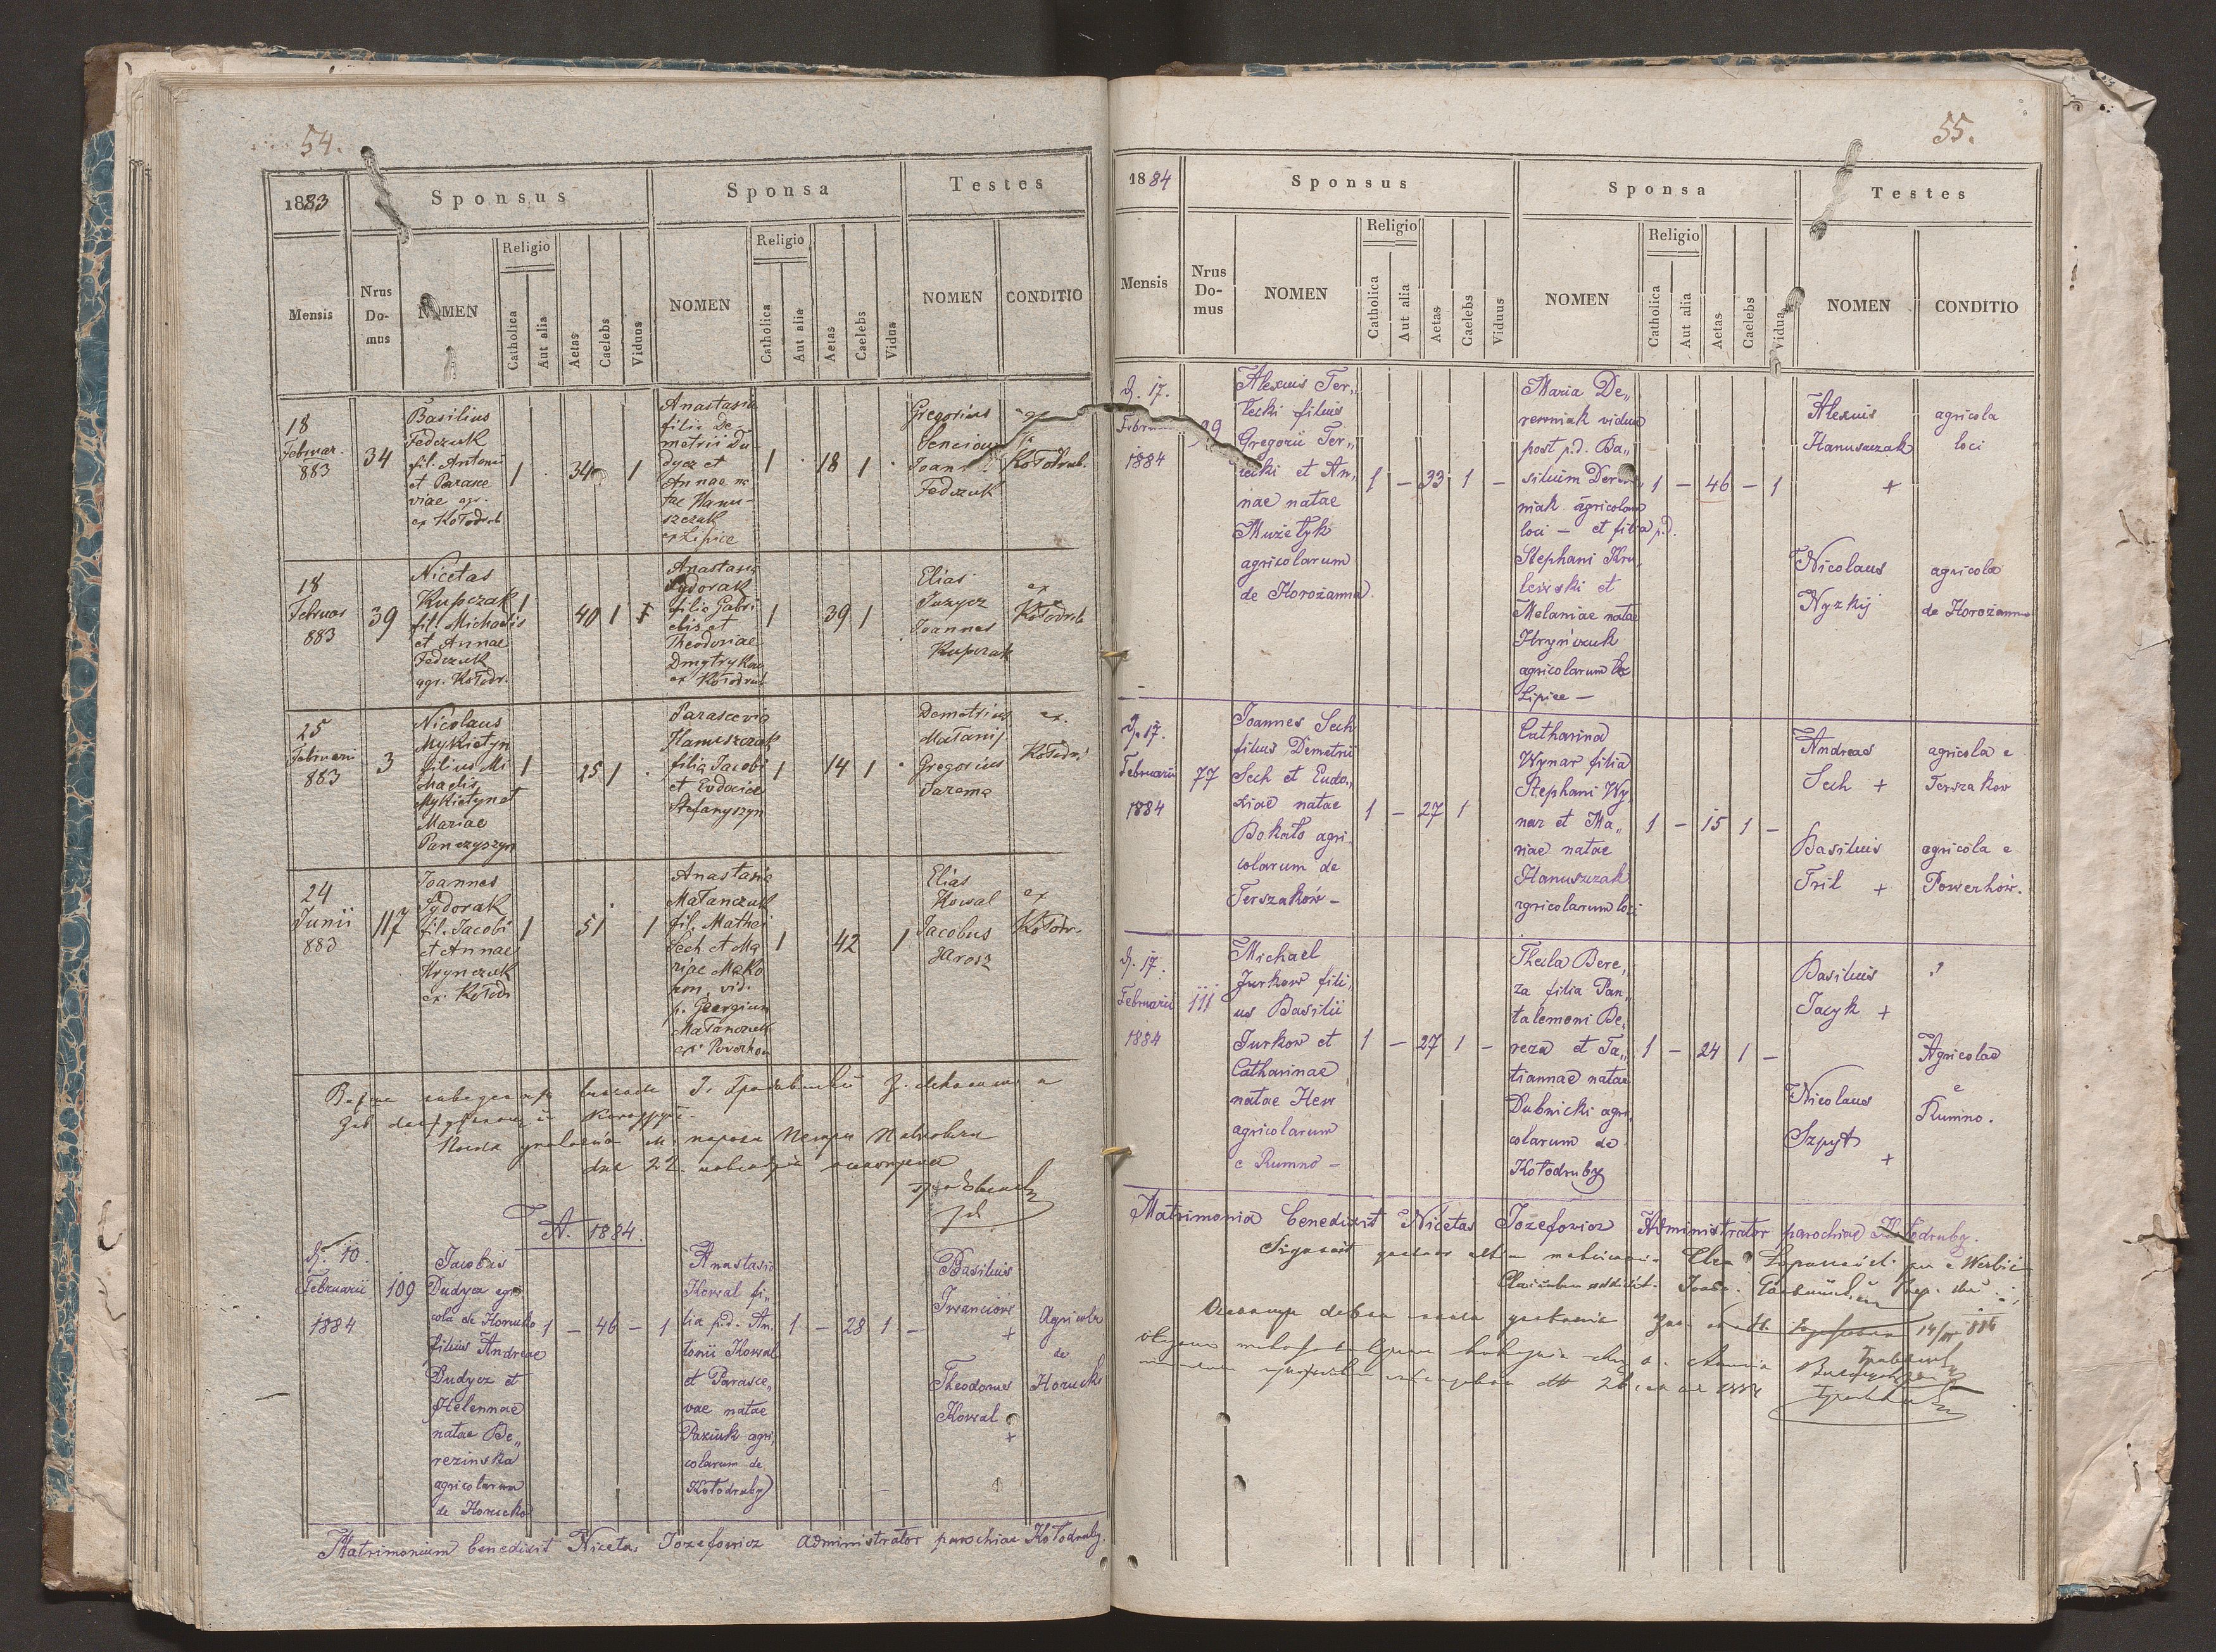 54.
1883
Sponsus
Sponsa
Testes
Mensis
Nrus Domus
NOMEN
Religio
Catholica
Aut alia
Aetas
Caelebs
Viduus
NOMEN
Religio
Catholica
Aut alia
Aetas
Caelebs
Vidua
NOMEN
CONDITIO
18
Februar.
883
34
Basilius
Fedczuk
fil. Antonii
et Parasce
viae agr.
ex Kołodrub
1
34
1
Anastasia
filia De
metrii Du
dycz et
Annae na
tae Hanu-
szczak
ex Lipice
1
18
1
Gregorius
Senciow
Joannes
Fedczuk
Kołodrub.
18
Februar
883
39
Nicetas
Kupczak
fil. Michaelis
et Annae
Fedczuk
agr. Kołodr.
1
40
1
Anastasia
Sydorak
filia Gabri
elis et
Theodoriae
Dmytryków
ex Kołodrub
1
39
1
Elias
Juzycz
Joannes
Kupczak
ex
Kołodrub
25
Februarii
883
3
Nicolaus
Mykietyn
filius Mi
chaelis
Mykietyn et
Mariae
Panczyszyn
1
25
1
Parascevia
Hanuszczak
filia Jacobi
et Eudociae
Stefanyszyn
1
14
1
Demetrius
Małanij
Gregorius
Jarema
ex.
Kołodr
24
Junii
883
117
Joannes
Sydorak
fil. Jacobi
et Annae
Hrynczuk
ex. Kołodr
1
51
1
Anastasia
Małanczuk
fil. Mathei
Sech et Ma
riae Mako
hon, vid.
p. Georgium
Małanczuk
ex. Powerhow
1
42
1
Elias
Kowal
Jacobus
Jarosz
ex
Kołodr.
A. 1884.
D. 10.
Februarii
1884
109
Jacobus
Dudycz agri
cola de Horucko
filius Andreae
Dudycz et
Helennae
natae Be„
rezinska
agricolarum
de Horucko
1 — 46 — 1
Anastasia
Kowal fi„
lia p.d. An„
tonii Kowal
et Parasce„
vae natae
Paziuk agri„
colarum de
Kołodruby
1 — 28 1 —
Basilius
Iwanciów
+
Theodorus
Kowal
+
Agricola
de
Horucko
Matrimonium benedixit Nicetas Jozefowicz Administrator parochiae Kołodruby.
55.
1884
Sponsus
Sponsa
Testes
Mensis
Nrus Domus
NOMEN
Religio
Catholica
Aut alia
Aetas
Caelebs
Viduus
NOMEN
Religio
Catholica
Aut alia
Aetas
Caelebs
Vidua
NOMEN
CONDITIO
D. 17.
Februarii
1884
Alexius Ter„
lecki filius
Gregorii Ter„
lecki et An„
nae natae
Mużełyk
agricolarum
de Horożanna.
1 — 33 1 —
Maria De„
rewniak vidua
post p.d. Ba„
silium Derew„
niak agricolam
loci — et filia p.d.
Stephani Kru„
lewski et
Melaniae natae
Hryńczuk
agricolarum de
Lipice —
1 — 46 — 1
Alexius
Hanuszczak
+
Nicolaus
Nyzkij
agricola
loci
agricola
de Horożanna
D. 17.
Februarii
1884
77
Joannes Sech
filius Demetrii
Sech et Eudo„
xiae natae
Bokało agri„
colarum de
Terszaków —
1 — 27 1
Catharina
Wynar filia
Stephani Wy„
nar et Ma„
riae natae
Hanuszczak
agricolarum loci
1 — 15 1 —
Andreas
Sech +
Basilius
Tril +
agricola e
Terszakow
agricola e
Powerhów.
D. 17.
Februarii
1884
111
Michael
Jurkow fili„
us Basilii
Jurkow et
Catharinae
natae Hew
agricolarum
e Rumno —
1 — 27 1 —
Thecla Bere„
za filia Pan„
talemoni Be„
reza et Ta„
tiannae natae
Dubnicki agri„
colarum de
Kołodruby
1 — 24 1 —
Basilius
Jacyk +
Nicolaus
Szpyt
+
Agricolae
e
Rumno.
Matrimonia benedixit Nicetas Jozefowicz Administrator parochiae Kołodruby.